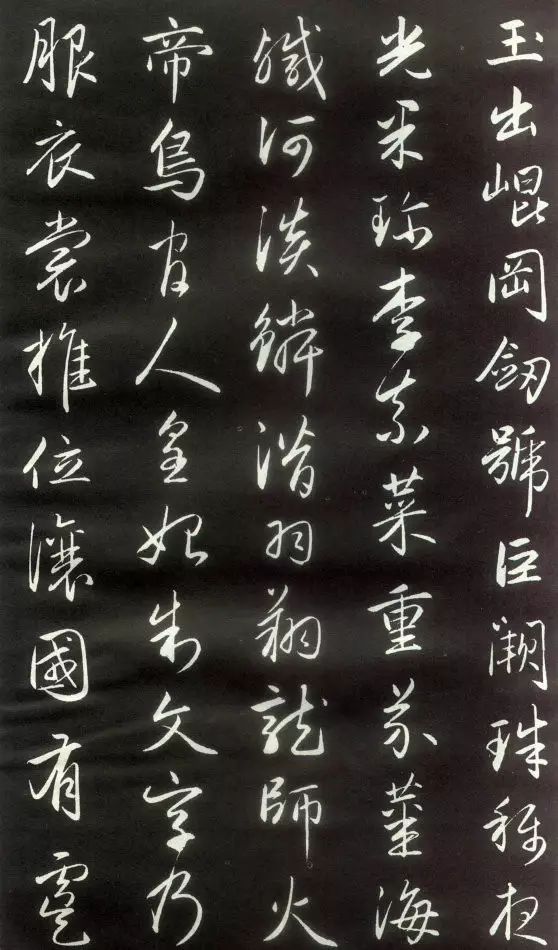 玉出崐岡劒號巨闕珠稱夜
光果珍李柰菜重芥薑海
鹹河淡鱗潛羽翔龍師火
帝鳥官人皇始制文字乃
服衣裳推位讓國有虞